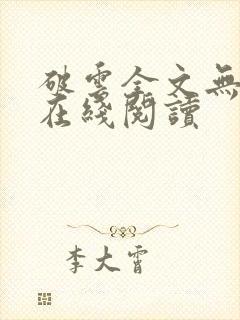 破雲全文無
在綫閱讀
李大霄